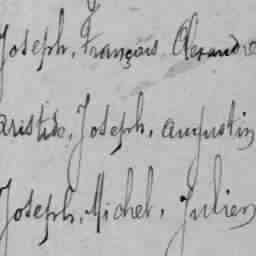 Joseph, François Alexandre
aristide, Joseph, augustin
Joseph, Michel, Julien